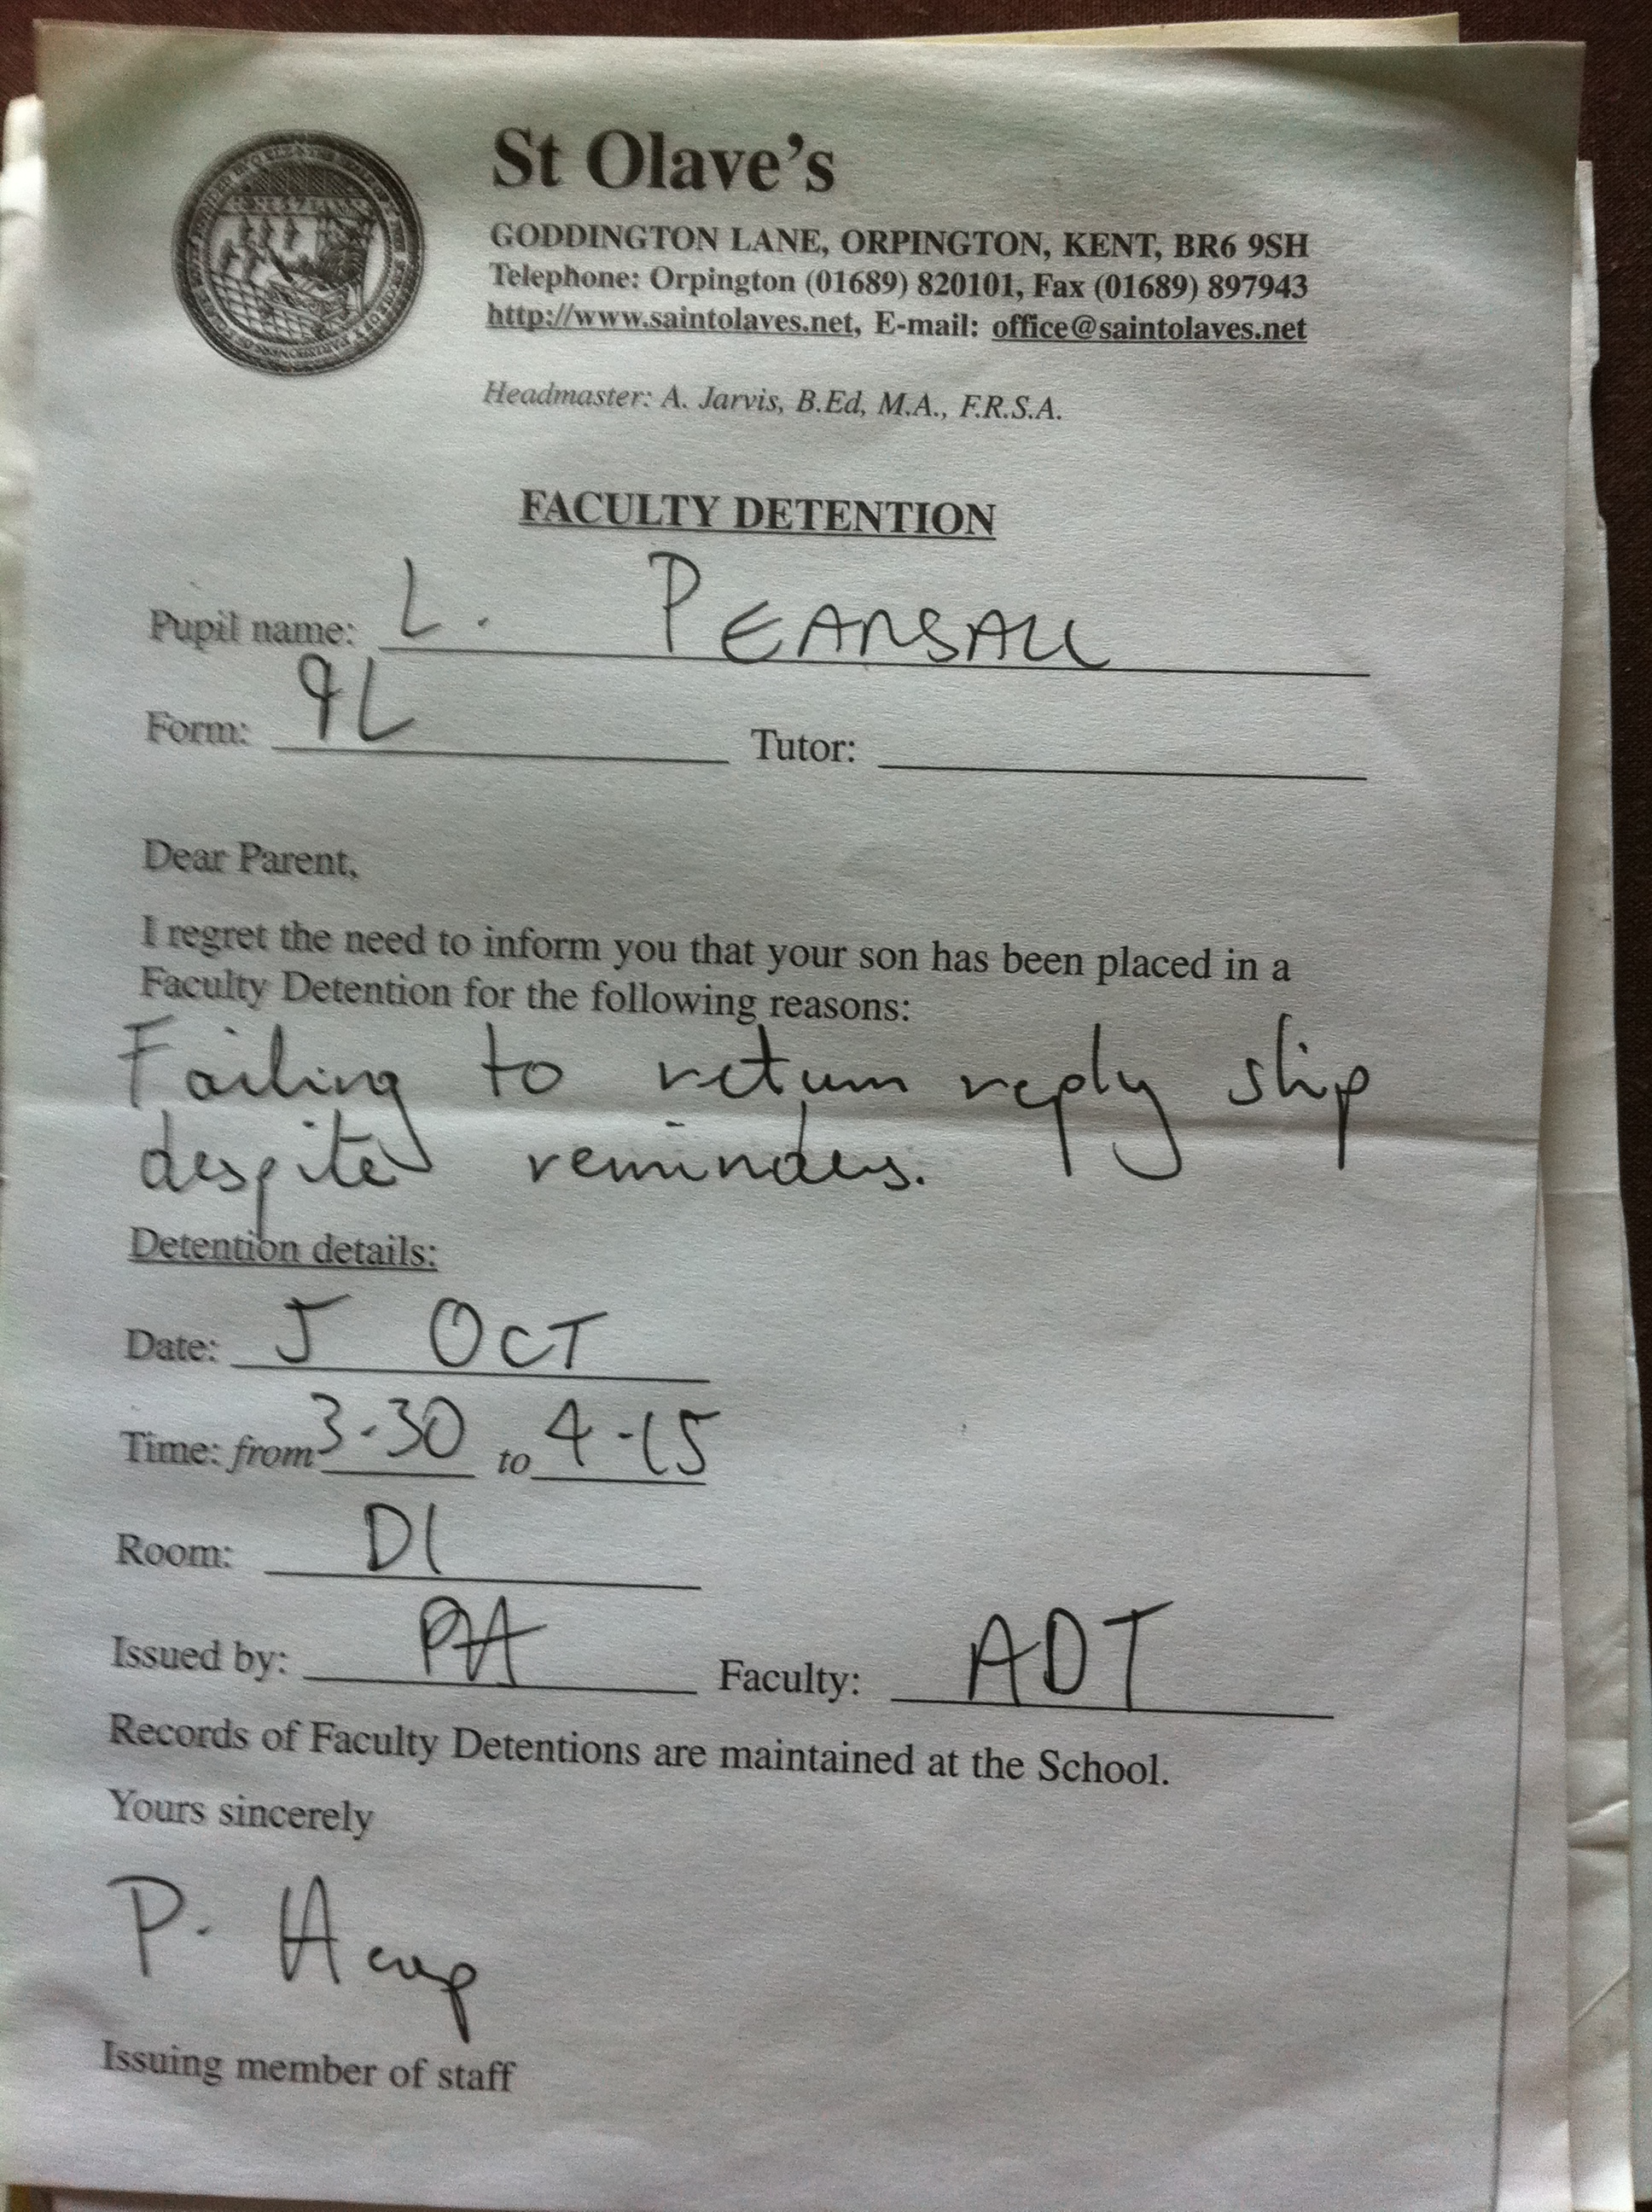 St Olave's
GODDINGTON LANE, ORPINGTON, KENT, BR6 9SH
Telephone: Orpington (01689) 820101, Fax (01689) 897943
http://www.saintolaves.net, E-mail: office@saintolaves.net
Headmaster: A. Jarvis, B.Ed, M.A., F.R.S.A.
FACULTY DETENTION
Pupil name: L. PEARSALL
Form: 9L Tutor:
Dear Parent,
I regret the need to inform you that your son has been placed in a
Faculty Detention for the following reasons:
Failing to return reply slip
despite reminders.
Detention details:
Date: 5 OCT
Time: from 3-30 to 4-15
Room: D1
Issued by: PA Faculty: ADT
Records of Faculty Detentions are maintained at the School.
Yours sincerely
P.
Issuing member of staff